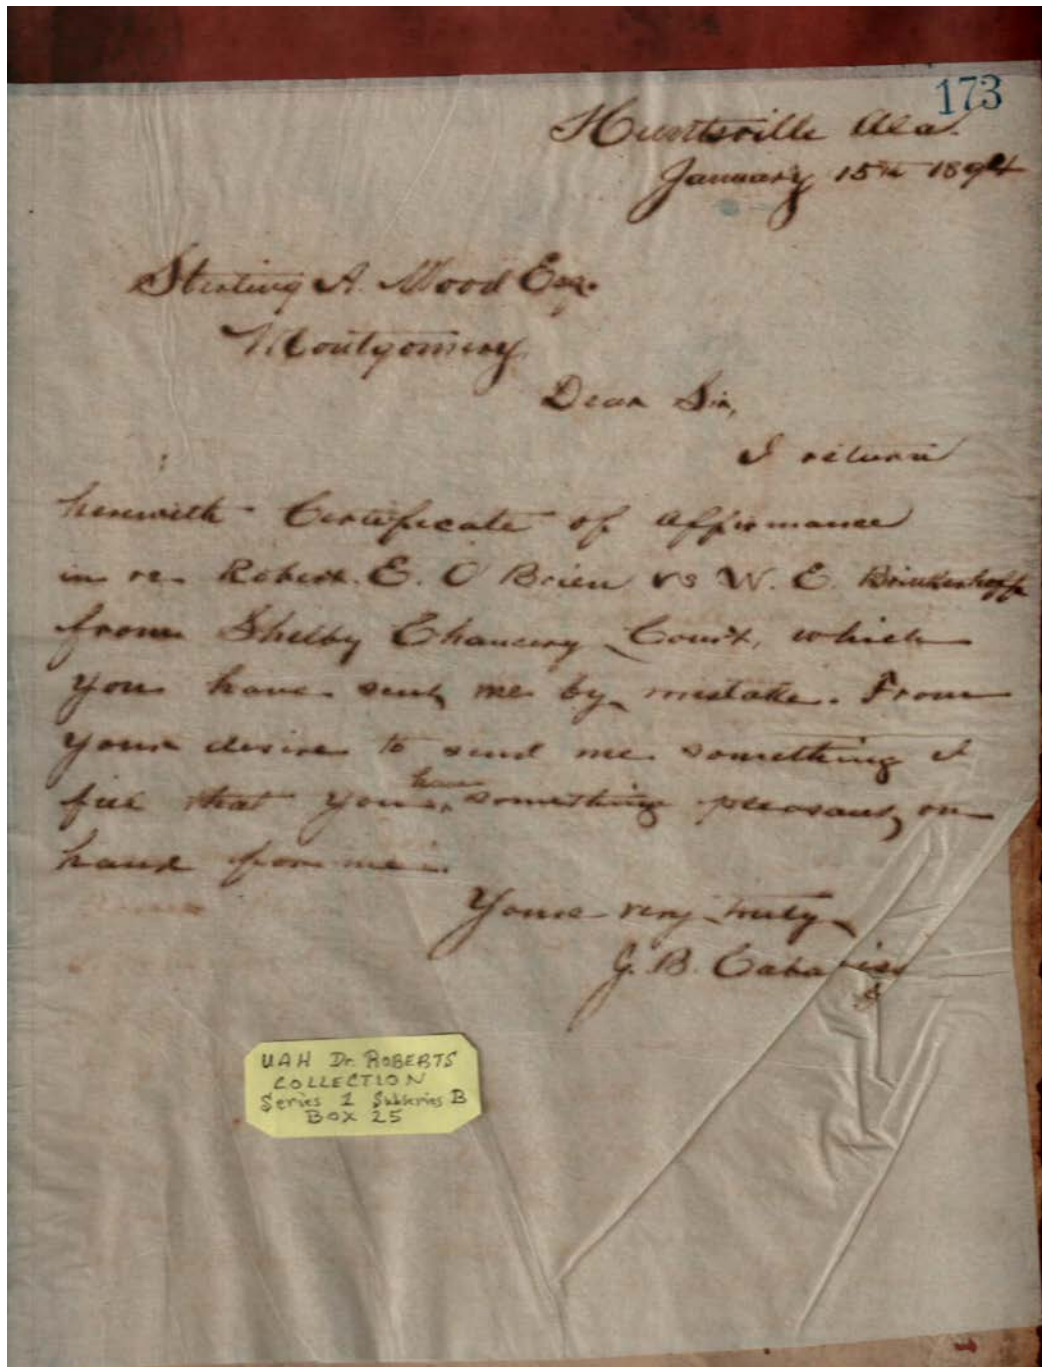 173
Huntsville Ala.
January 15th 1894
Sterling A. Wood Esq.
Montgomery
Dear Sir,
I return
herewith Certificate of affirmance
in re Robert. E. O Brien vs W. E. Brinkerhoff
from Shelby Chancery Court, which
you have sent me by mistake. From
your desire to send me something I
feel that you have something pleasant on
hand for me.
Yours very truly
J. B. Cabaniss
UAH Dr. ROBERTS
COLLECTION
Series 1 Subseries B
BOX 25